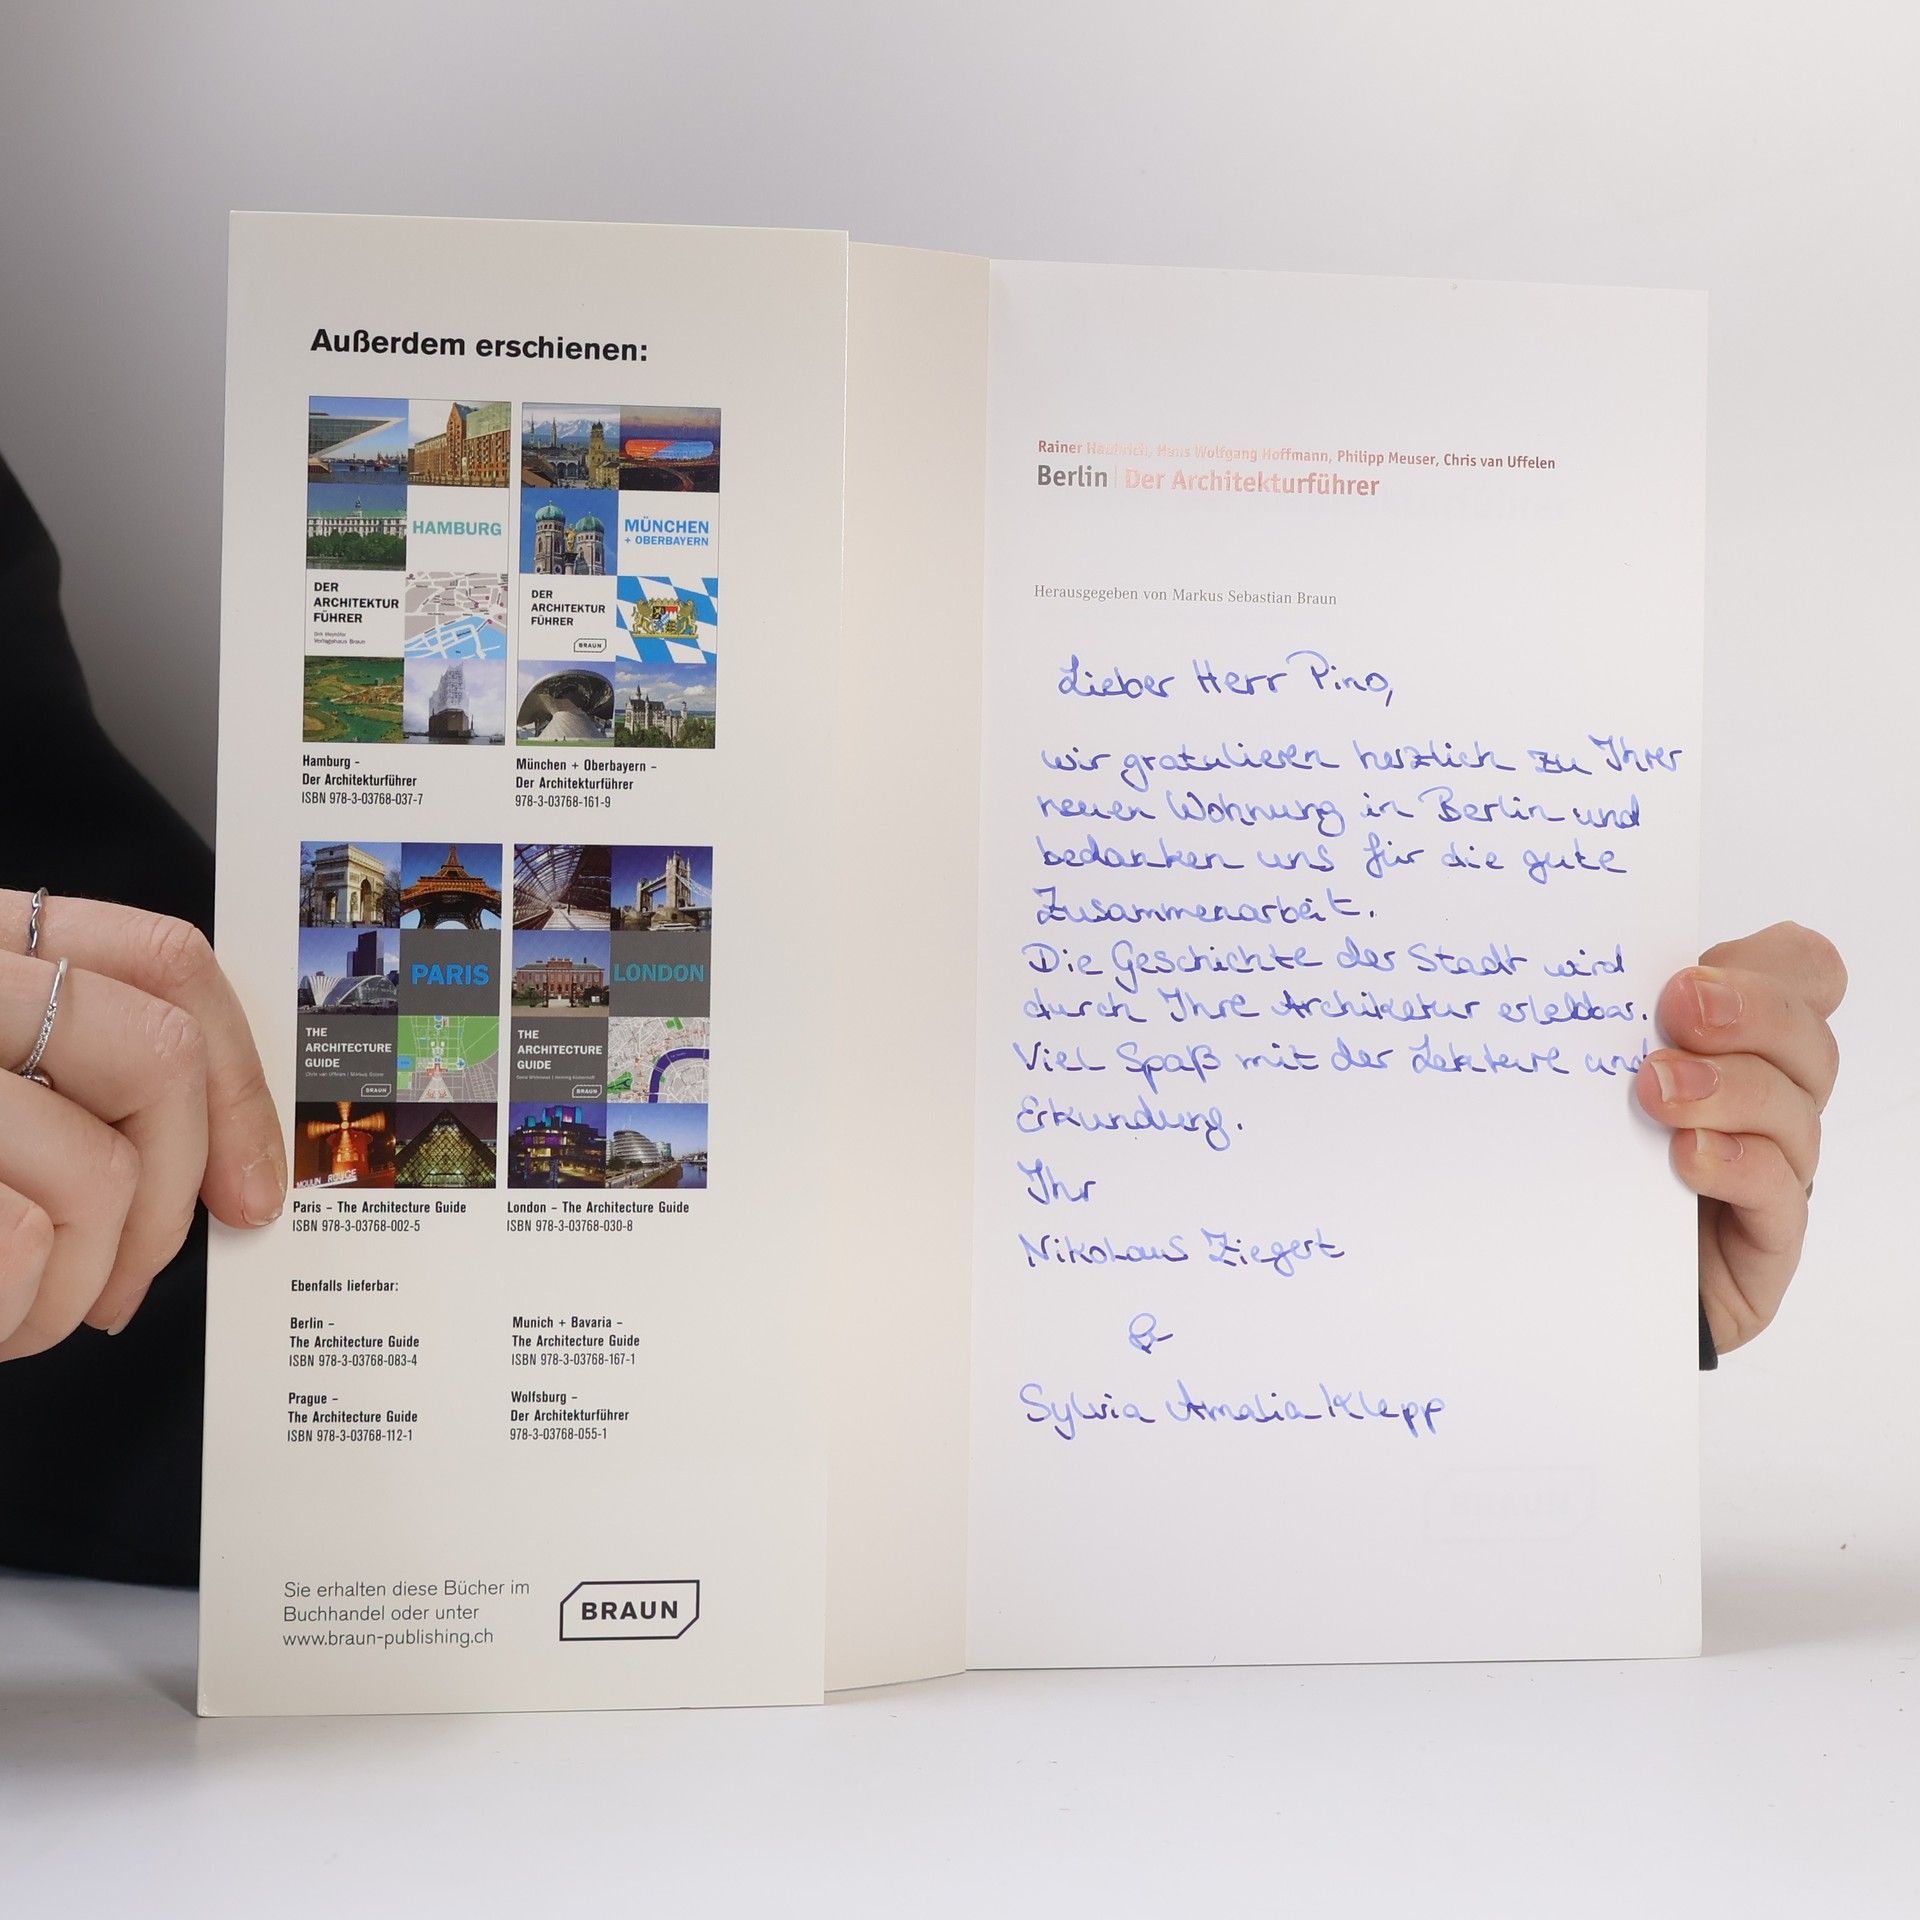 Außerdem erschienen:
HAMBURG
DER
ARCHITEKTUR
FÜHRER
MÜNCHEN
+ OBERBAYERN
DER
ARCHITEKTUR
FÜHRER
BRAUN
Hamburg -
Der Architekturführer
ISBN 978-3-03768-037-7
München + Oberbayern –
Der Architekturführer
978-3-03768-161-9
PARIS
THE
ARCHITECTURE
GUIDE
BRAUN
MOULIN ROUGE
LONDON
THE
ARCHITECTURE
GUIDE
BRAUN
Paris – The Architecture Guide
ISBN 978-3-03768-002-5
London – The Architecture Guide
ISBN 978-3-03768-030-8
Ebenfalls lieferbar:
Berlin –
The Architecture Guide
ISBN 978-3-03768-083-4
Munich + Bavaria –
The Architecture Guide
ISBN 978-3-03768-167-1
Prague –
The Architecture Guide
ISBN 978-3-03768-112-1
Wolfsburg –
Der Architekturführer
978-3-03768-055-1
Sie erhalten diese Bücher im
Buchhandel oder unter
www.braun-publishing.ch
BRAUN
Rainer Hans Wolfgang Hoffmann, Philipp Meuser, Chris van Uffelen
Berlin | Der Architekturführer
Herausgegeben von Markus Sebastian Braun
Lieber Herr Pino,
wir gratulieren herzlich zu Ihrer
neuen Wohnung in Berlin und
bedanken uns für die gute
Zusammenarbeit.
Die Geschichte der Stadt wird
durch Ihre erlebbar.
Viel Spaß mit der Lektüre und
Erkundung.
Ihr
Nikolaus Ziegert
&
Sylvia Amalia Klepp